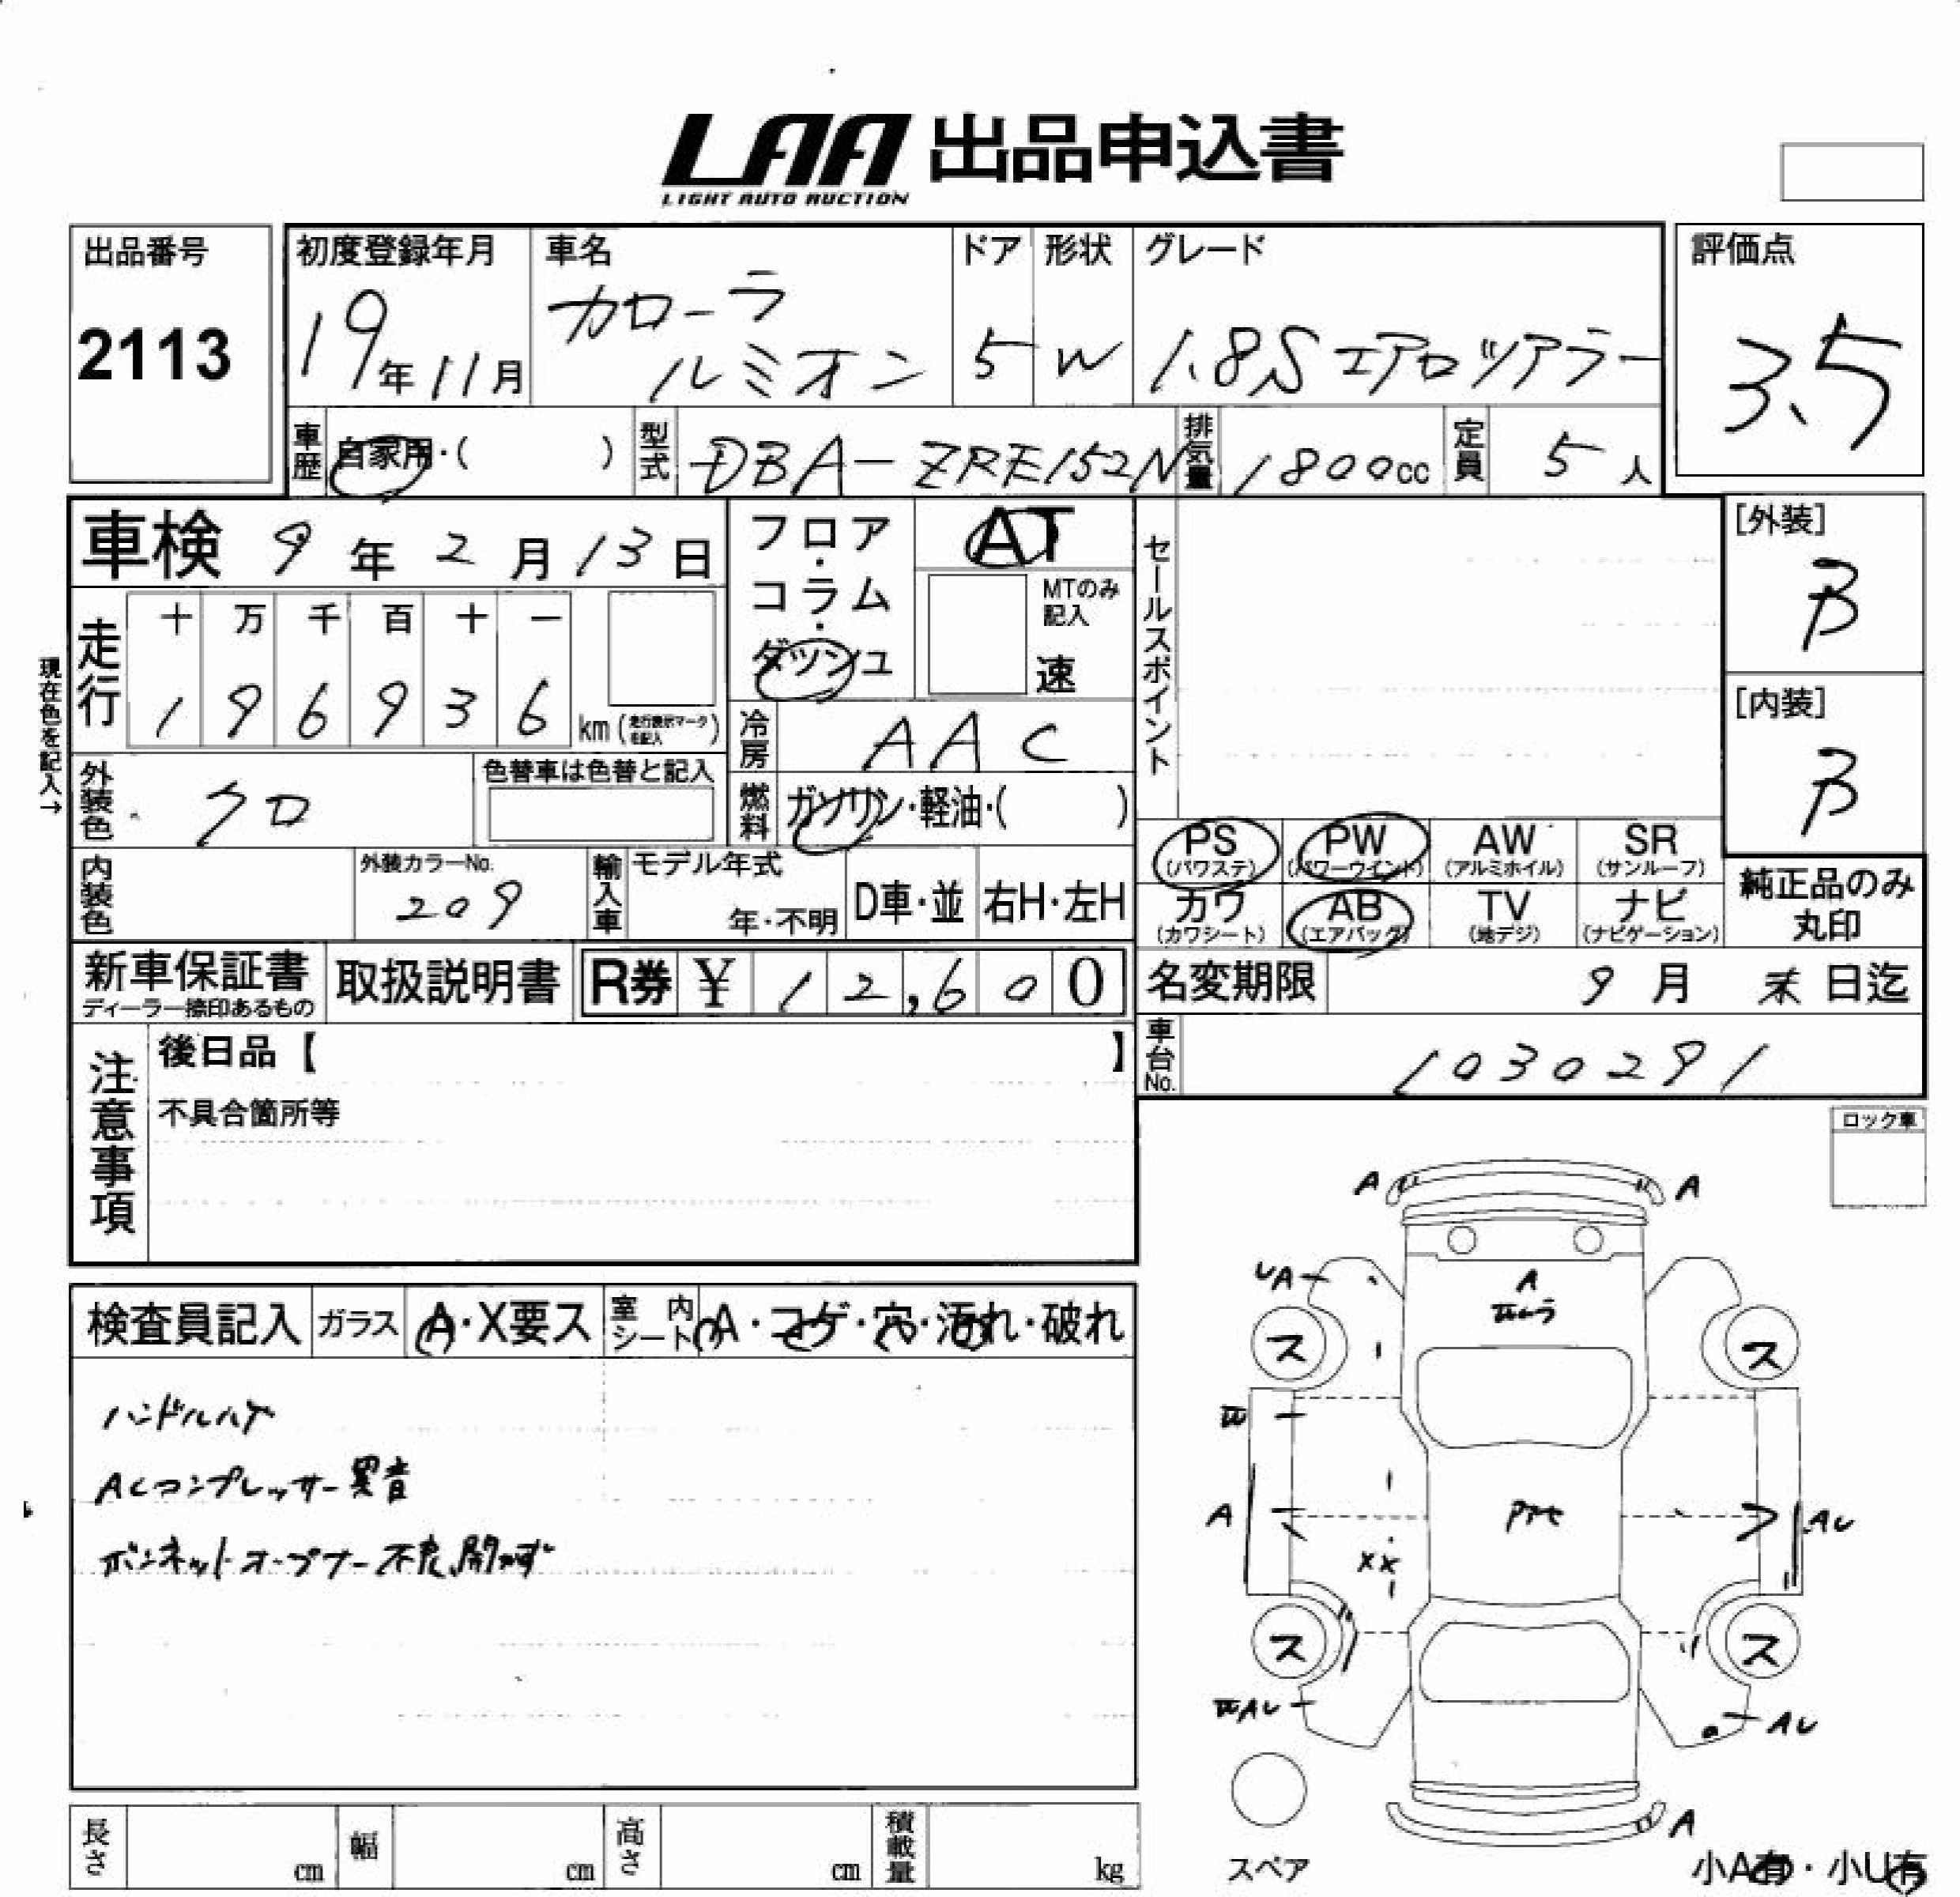 LAA 出品申込書
LIGHT AUTO AUCTION
出品番号
2113
初度登録年月
19年11月
車名
カローラ
ルミオン
ドア
5
形状
W
グレード
1.8S エアロツアラー
評価点
3.5
車歴
自家用・( )
型式
DBA-ZRE152N
排気量
1800cc
定員
5人
車検 9年2月13日
フロア・コラム・ダッシュ
AT
MTのみ記入
速
セールスポイント
[外装]
B
[内装]
B
現在色を記入→
走行
十 万 千 百 十 一
1 9 6 9 3 6 km (走行表示マークを記入)
冷房
AAC
外装色
クロ
色替車は色替と記入
燃料
ガソリン・軽油・( )
PS (パワステ)
PW (パワーウインド)
AW (アルミホイル)
SR (サンルーフ)
カワ (カワシート)
AB (エアバッグ)
TV (地デジ)
ナビ (ナビゲーション)
純正品のみ
丸印
内装色
外装カラーNo.
209
輸入車
モデル年式
年・不明
D車・並
右H・左H
新車保証書
ディーラー捺印あるもの
取扱説明書
R券 ¥ 12,600
名変期限
9月 末日迄
車台No.
1030291
注意事項
後日品【 】
不具合箇所等
ロック車
検査員記入
ガラス
A・X要ス
室内シート
A・コゲ・穴・汚れ・破れ
ハンドルハゲ
ACコンプレッサー異音
ボンネットオープナー不良、開かず
A
A
UA
A
ス
ス
A
AU
XX
ス
ス
AU
AU
A
スペア
小A有・小U有
長さ
cm
幅
cm
高さ
cm
積載量
kg